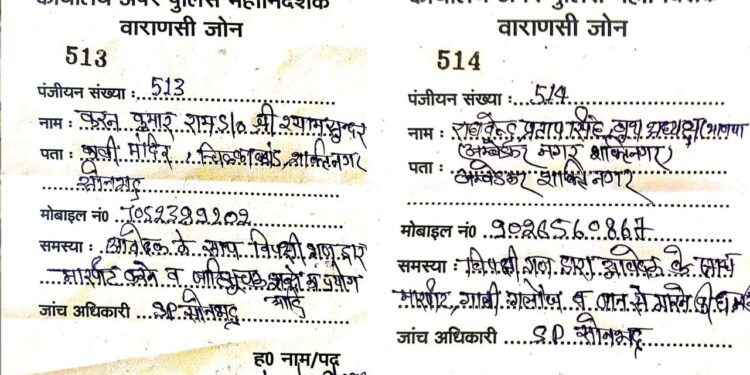 कार्यालय अपर पुलिस महानिदेशक
वाराणसी जोन
513
पंजीयन संख्या : 513
नाम : करन कुमार राम S/o श्री श्यामसुन्दर
पता : काली मंदिर, चिल्काटांड, शक्तिनगर
सोनभद्र
मोबाइल नं0 7052399202
समस्या : आवेदक के साथ विपक्षी गण द्वारा
मारपीट करने व जातिसूचक शब्दों का प्रयोग
आदि
जांच अधिकारी S.P. सोनभद्र
ह0 नाम/पद
वाराणसी जोन
514
पंजीयन संख्या : 514
नाम : प्रताप सिंह, अध्यक्ष भाजपा
(अम्बेडकर नगर शक्तिनगर)
पता : अम्बेडकर शक्तिनगर
मोबाइल नं0 9026560867
समस्या : विपक्षी गण द्वारा आवेदक के साथ
मारपीट, गाली गलौज व जान से मारने की
जांच अधिकारी S.P. सोनभद्र